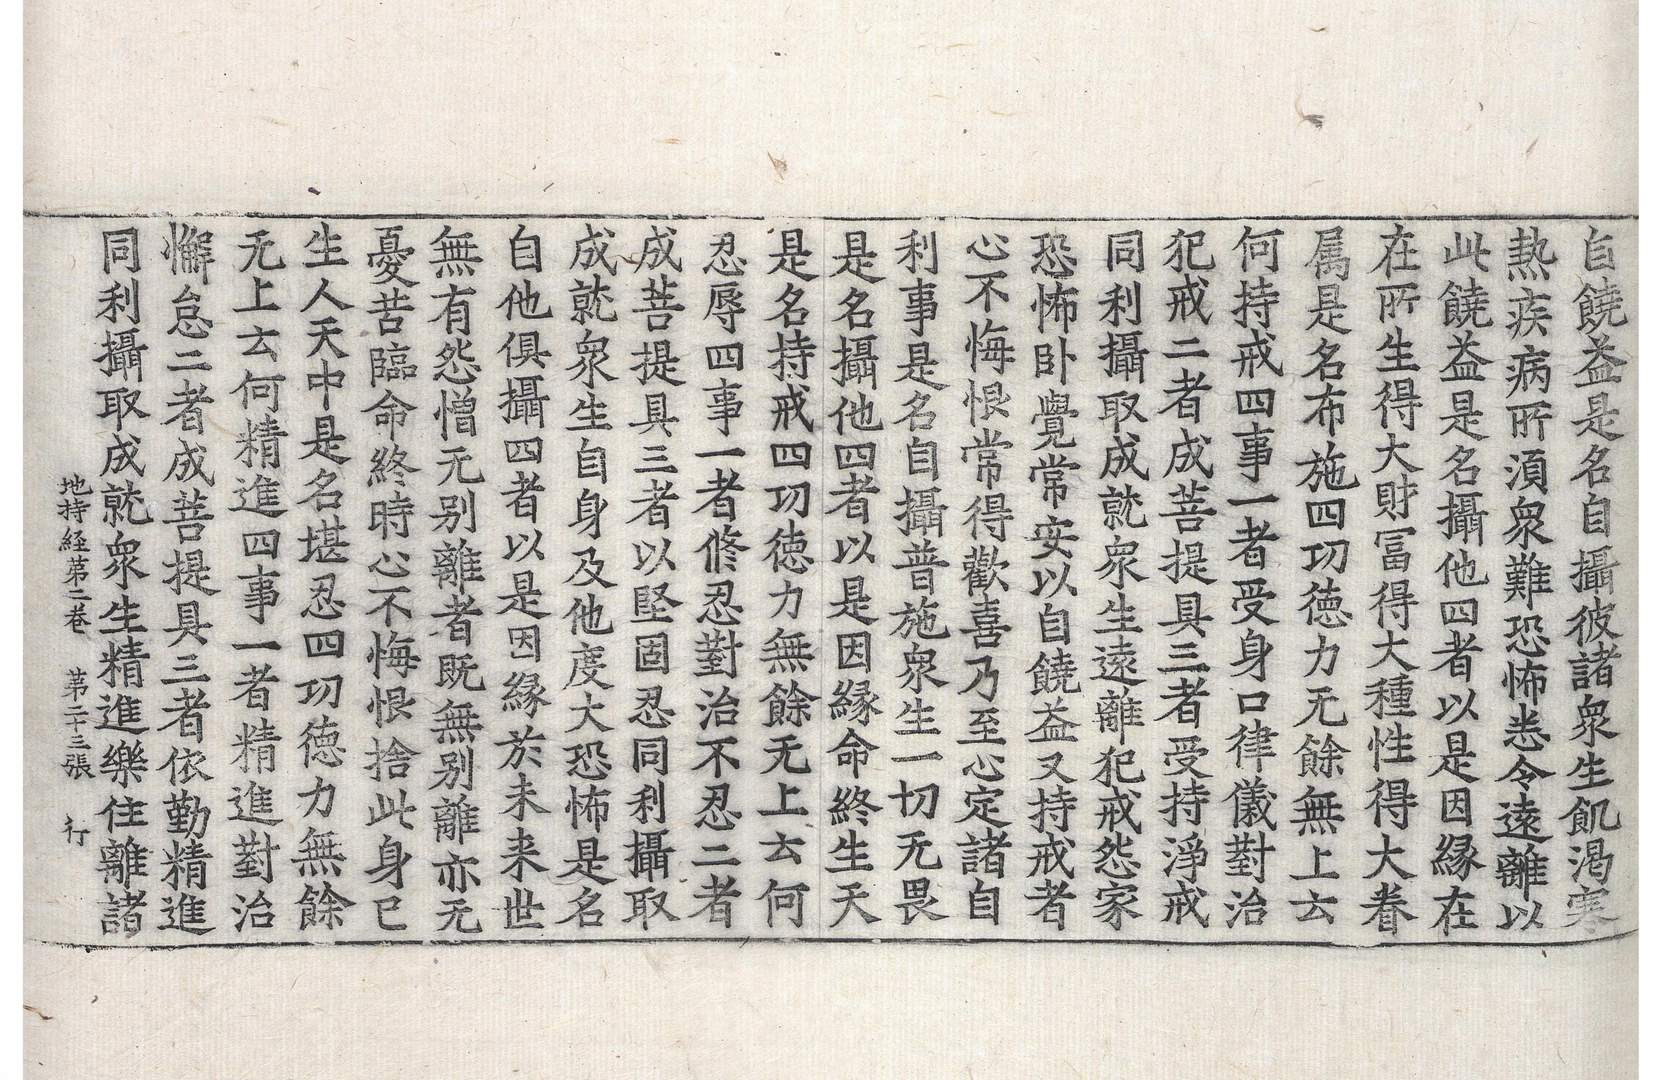 自饒益是名自攝彼諸衆生飢渴寒
熱疾病所湏衆難恐怖悉令遠離以
此饒益是名攝他四者以是因縁在
在所生得大財冨得大種性得大眷
属是名布施四功徳力无餘無上云
何持戒四事一者受身口律儀對治
犯戒二者成菩提具三者受持淨戒
同利攝取成就衆生遠離犯戒怨家
恐怖卧覺常安以自饒益又持戒者
心不悔恨常得歡喜乃至心定諸自
利事是名自攝普施衆生一切无畏
是名攝他四者以是因縁命終生天
是名持戒四功徳力無餘无上云何
忍辱四事一者修忍對治不忍二者
成菩提具三者以堅固忍同利攝取
成就衆生自身及他度大恐怖是名
自他俱攝四者以是因縁於未来世
無有怨憎无别離者既無别離亦无
憂苦臨命終時心不悔恨捨此身已
生人天中是名堪忍四功徳力無餘
无上云何精進四事一者精進對治
懈怠二者成菩提具三者依勤精進
同利攝取成就衆生精進樂住離諸
地持経第二巻　第二十三張　行